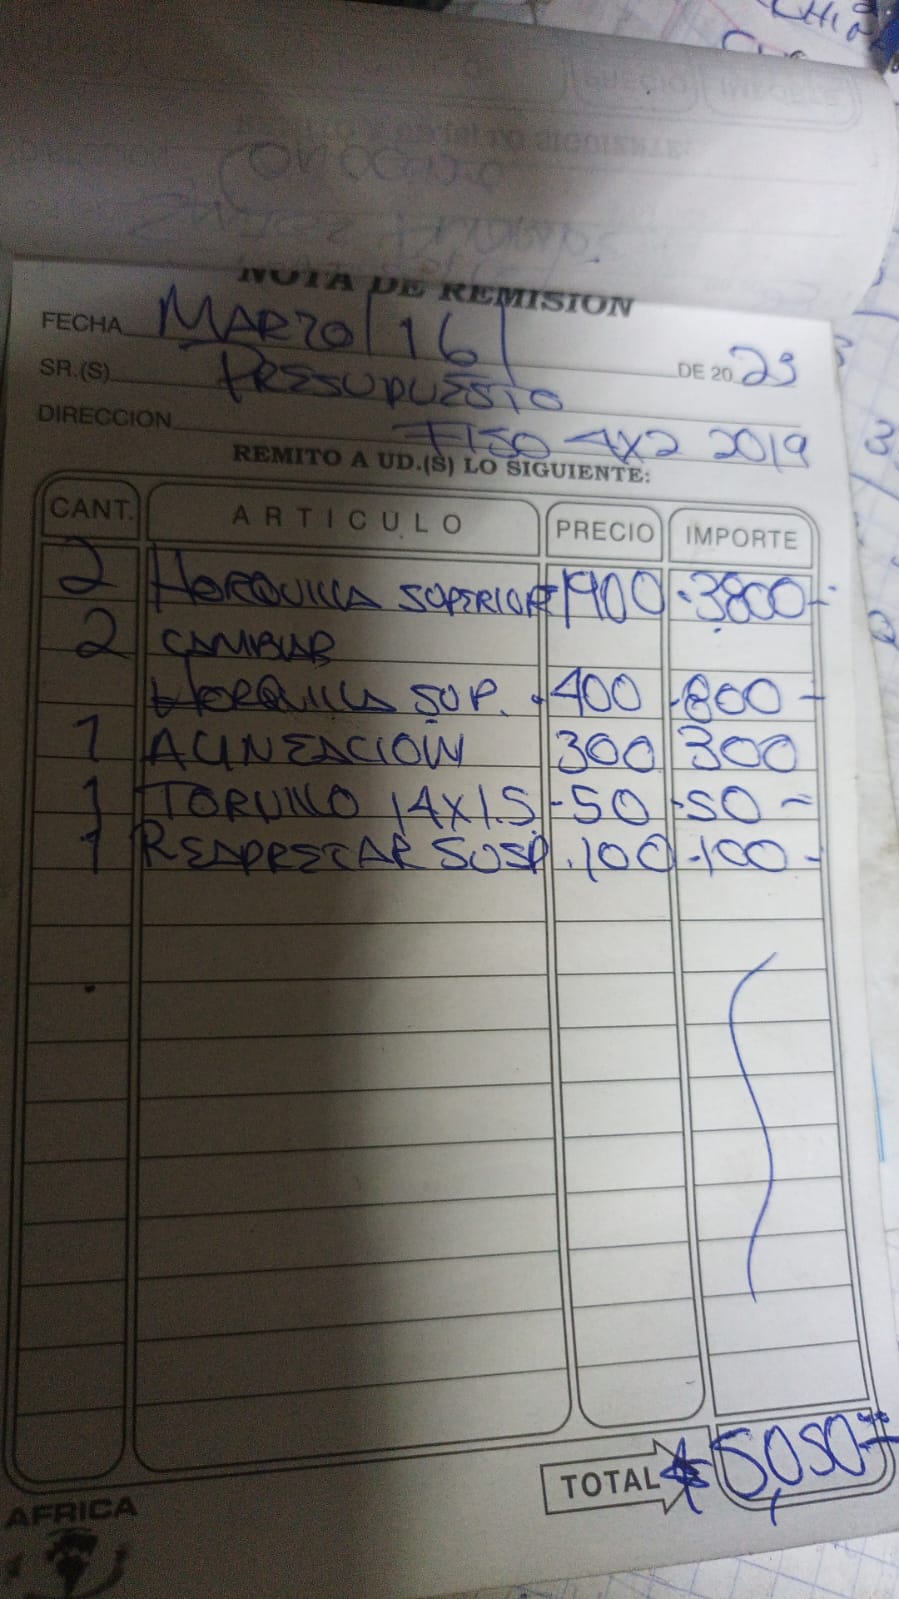 NOTA DE REMISION
FECHA MARZO/16/ DE 2023
SR.(S) PRESUPUESTO
DIRECCION F150 4X2 2019
REMITO A UD.(S) LO SIGUIENTE:
CANT. ARTICULO PRECIO IMPORTE
2 HORQUILLA SUPERIOR 1900 3800-
2 CAMBIAR
HORQUILLA SUP. 400 800-
1 ALINEACION 300 300
1 TORNILLO 14X1.5 50 50-
1 REAPRETAR SUSP. 100 100-
TOTAL $ 5,050-
AFRICA